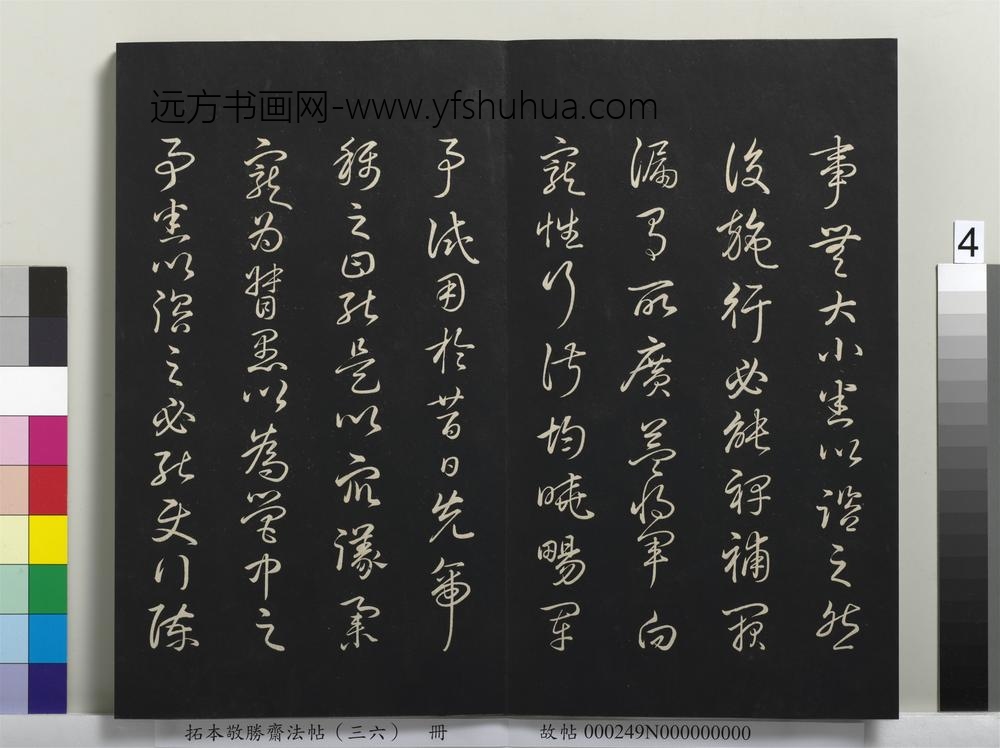 远方书画网-www.yfshuhua.com
事無大小悉以諮之然
後施行必能裨補闕
漏有所廣益將軍向
寵性行淑均曉暢軍
事試用於昔日先帝
稱之曰能是以眾議舉
寵為督愚以為營中之
事悉以諮之必能使行陳
4
拓本敬勝齋法帖（三六） 冊
故帖 000249N000000000